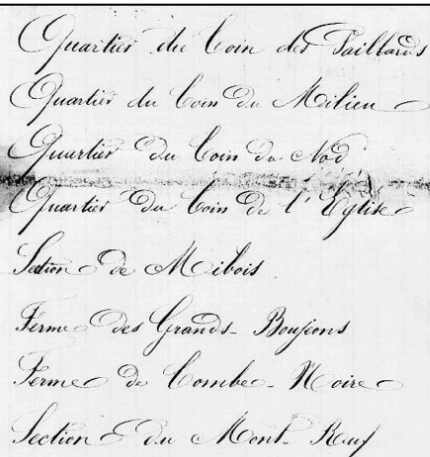 Quartier du Coin des Paillards
Quartier du Coin Du Milieu
Quartier Du Coin Du Nod
Quartier Du Coin De l'Eglise
Section De Mibois
Ferme Des Grands-Boujons
Ferme De Combe-Noire
Section Du Mont-Ruf